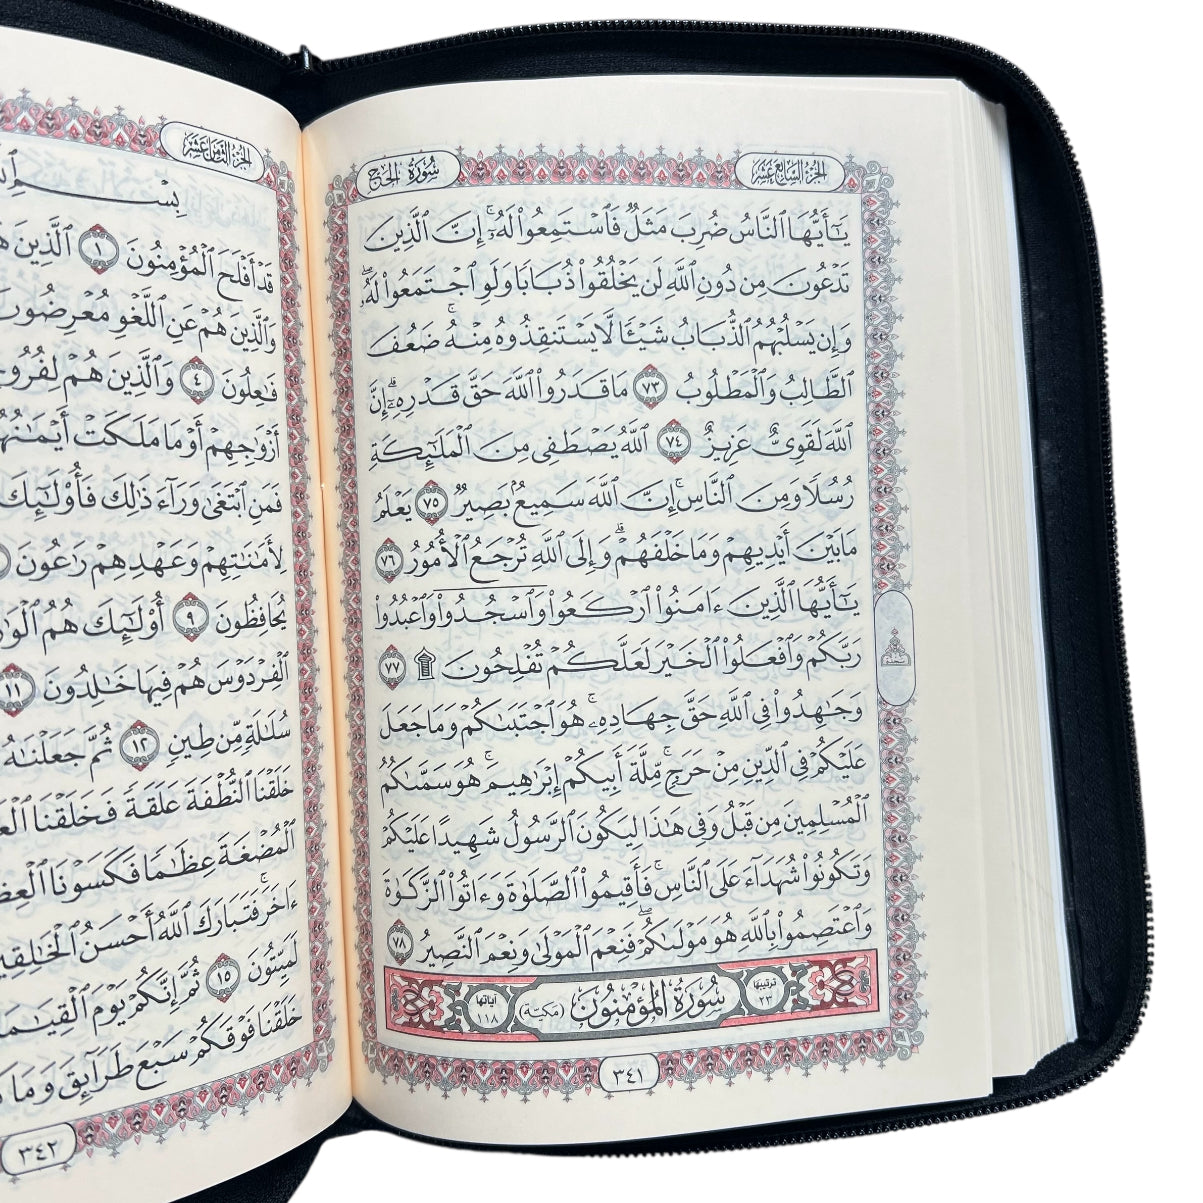 سُورَةُ الحَجِّ
الجُزْءُ السَّابِعَ عَشَرَ
يَٰٓأَيُّهَا ٱلنَّاسُ ضُرِبَ مَثَلٌ فَٱسْتَمِعُوا۟ لَهُۥٓ ۚ إِنَّ ٱلَّذِينَ
تَدْعُونَ مِن دُونِ ٱللَّهِ لَن يَخْلُقُوا۟ ذُبَابًا وَلَوِ ٱجْتَمَعُوا۟ لَهُۥ ۖ
وَإِن يَسْلُبْهُمُ ٱلذُّبَابُ شَيْـًٔا لَّا يَسْتَنقِذُوهُ مِنْهُ ۚ ضَعُفَ
ٱلطَّالِبُ وَٱلْمَطْلُوبُ ٧٣ مَا قَدَرُوا۟ ٱللَّهَ حَقَّ قَدْرِهِۦٓ ۗ إِنَّ
ٱللَّهَ لَقَوِىٌّ عَزِيزٌ ٧٤ ٱللَّهُ يَصْطَفِى مِنَ ٱلْمَلَٰٓئِكَةِ
رُسُلًا وَمِنَ ٱلنَّاسِ ۚ إِنَّ ٱللَّهَ سَمِيعٌۢ بَصِيرٌ ٧٥ يَعْلَمُ
مَا بَيْنَ أَيْدِيهِمْ وَمَا خَلْفَهُمْ ۗ وَإِلَى ٱللَّهِ تُرْجَعُ ٱلْأُمُورُ ٧٦
يَٰٓأَيُّهَا ٱلَّذِينَ ءَامَنُوا۟ ٱرْكَعُوا۟ وَٱسْجُدُوا۟ وَٱعْبُدُوا۟
رَبَّكُمْ وَٱفْعَلُوا۟ ٱلْخَيْرَ لَعَلَّكُمْ تُفْلِحُونَ ۩ ٧٧
وَجَٰهِدُوا۟ فِى ٱللَّهِ حَقَّ جِهَادِهِۦ ۚ هُوَ ٱجْتَبَىٰكُمْ وَمَا جَعَلَ
عَلَيْكُمْ فِى ٱلدِّينِ مِنْ حَرَجٍ ۚ مِّلَّةَ أَبِيكُمْ إِبْرَٰهِيمَ ۚ هُوَ سَمَّىٰكُمُ
ٱلْمُسْلِمِينَ مِن قَبْلُ وَفِى هَٰذَا لِيَكُونَ ٱلرَّسُولُ شَهِيدًا عَلَيْكُمْ
وَتَكُونُوا۟ شُهَدَآءَ عَلَى ٱلنَّاسِ ۚ فَأَقِيمُوا۟ ٱلصَّلَوٰةَ وَءَاتُوا۟ ٱلزَّكَوٰةَ
وَٱعْتَصِمُوا۟ بِٱللَّهِ هُوَ مَوْلَىٰكُمْ ۖ فَنِعْمَ ٱلْمَوْلَىٰ وَنِعْمَ ٱلنَّصِيرُ ٧٨
ترتيبها ٢٣ سُورَةُ المُؤْمِنُونَ (مكيّة) آياتها ١١٨
٣٤١
سجدة
الجُزْءُ الثَّامِنَ عَشَرَ
بِسْمِ
قَدْ أَفْلَحَ ٱلْمُؤْمِنُونَ ١ ٱلَّذِينَ
وَٱلَّذِينَ هُمْ عَنِ ٱللَّغْوِ مُعْرِضُونَ
فَٰعِلُونَ ٤ وَٱلَّذِينَ هُمْ لِفُرُوجِ
أَزْوَٰجِهِمْ أَوْ مَا مَلَكَتْ أَيْمَٰنُهُمْ
فَمَنِ ٱبْتَغَىٰ وَرَآءَ ذَٰلِكَ فَأُو۟لَٰٓئِكَ
لِأَمَٰنَٰتِهِمْ وَعَهْدِهِمْ رَٰعُونَ
يُحَافِظُونَ ٩ أُو۟لَٰٓئِكَ هُمُ
ٱلْفِرْدَوْسَ هُمْ فِيهَا خَٰلِدُونَ ١١
سُلَٰلَةٍ مِّن طِينٍ ١٢ ثُمَّ جَعَلْنَٰهُ
خَلَقْنَا ٱلنُّطْفَةَ عَلَقَةً فَخَلَقْنَا
ٱلْمُضْغَةَ عِظَٰمًا فَكَسَوْنَا
ءَاخَرَ ۚ فَتَبَارَكَ ٱللَّهُ أَحْسَنُ ٱلْخَٰلِقِينَ
لَمَيِّتُونَ ١٥ ثُمَّ إِنَّكُمْ يَوْمَ
خَلَقْنَا فَوْقَكُمْ سَبْعَ طَرَآئِقَ وَمَا
٣٤٢